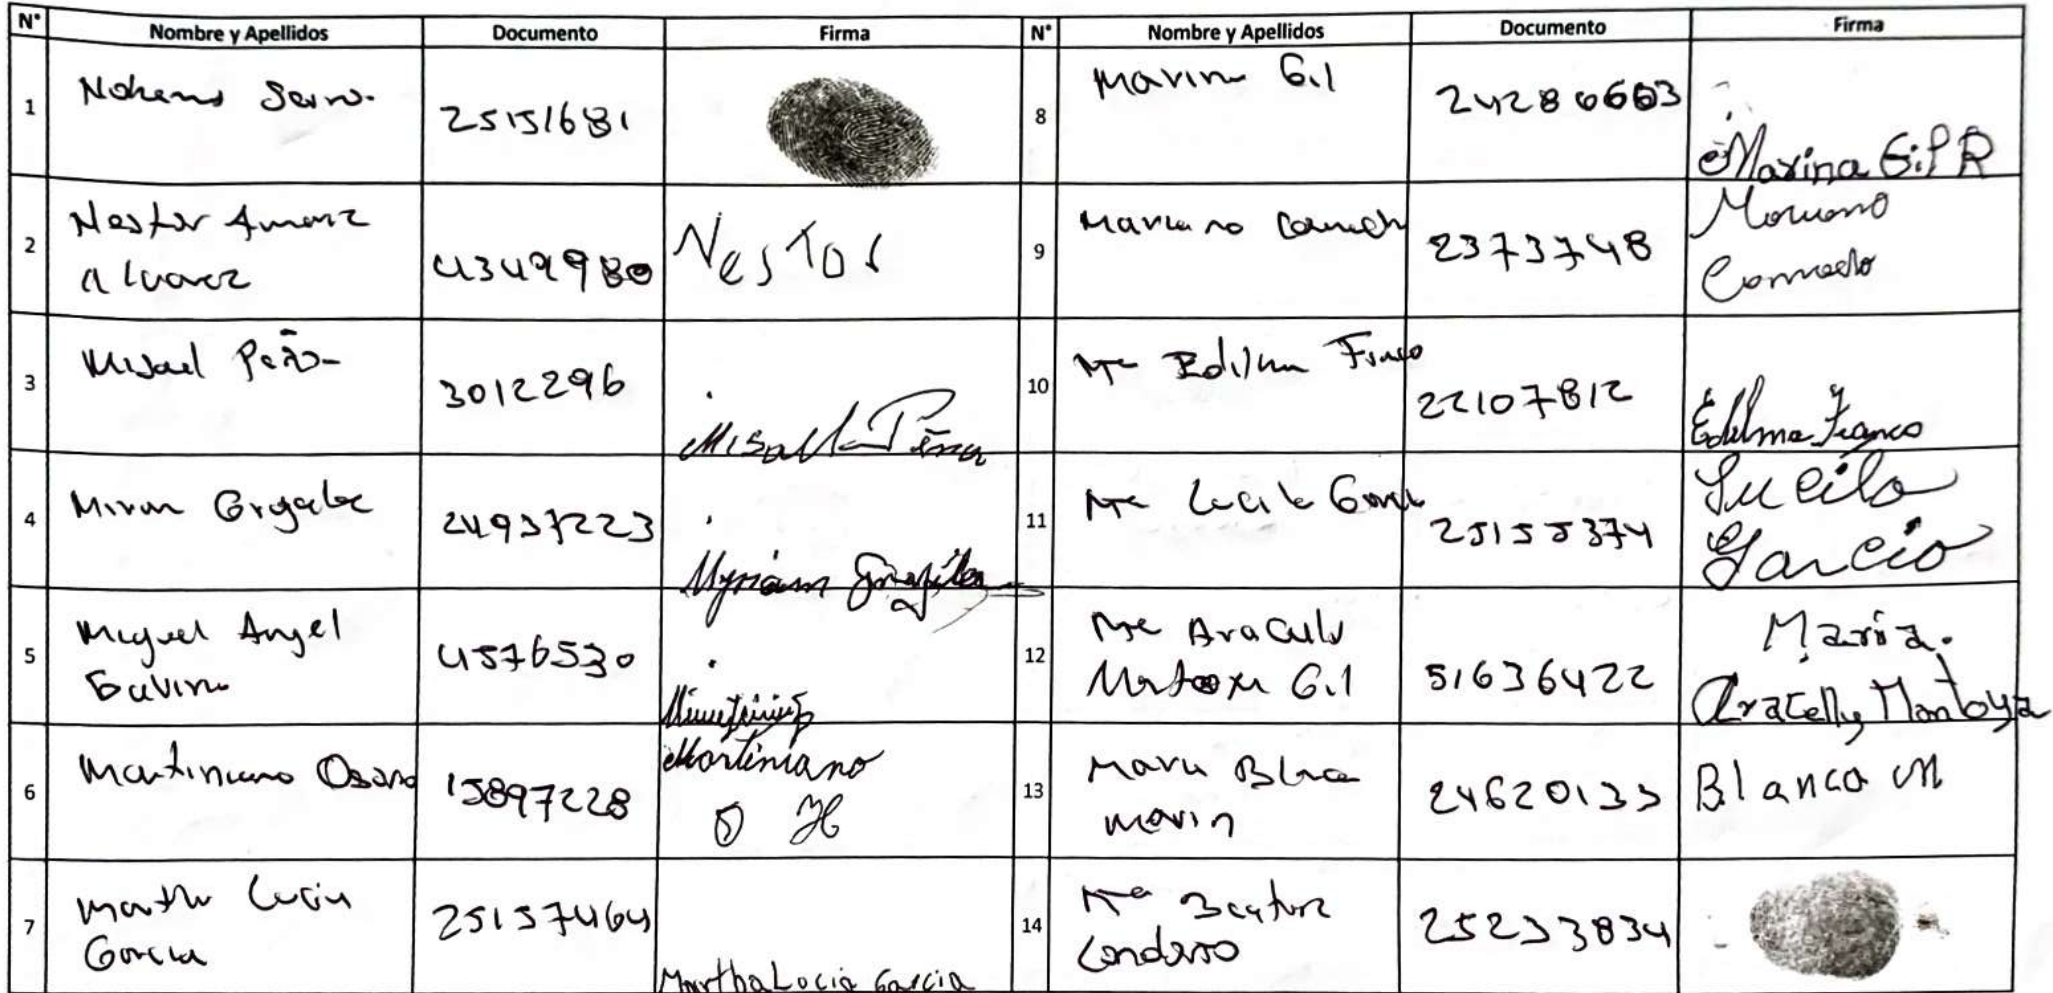 N° Nombre y Apellidos Documento Firma N° Nombre y Apellidos Documento Firma
1 25151681
8 Marina Gil
Marina Gil R
2 Nestor
Alvarez 4349980 Nestor
9 Mariano 2373748 Mariano
3 Misael Peña 3012296 Misael Peña
10 Mª Edilma Franco 22107812 Edilma Franco
4 24937223 Myriam
11 Mª Lucila Garcia 25155374 Lucila
Garcia
5 Miguel Angel
4576530
12 Mª
Gil 51636422 Maria.
Aracelly Montoya
6 Martiniano 15897228 Martiniano
O H
13 Maria Blanca
Marin 24620133 Blanca M
7 Martha Lucia
Garcia 25157464 Martha Lucia Garcia
14 Mª Beatriz
25233834